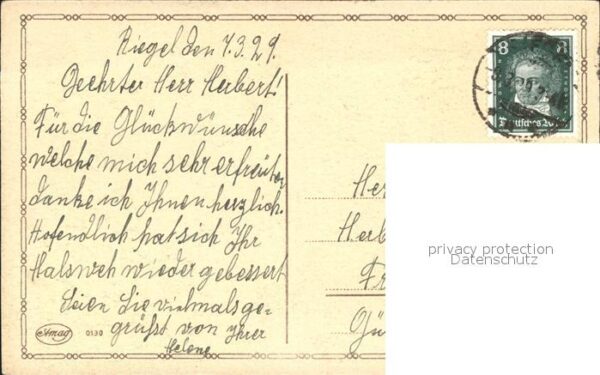 Riegel den 7.3.29.
Geehrter Herr Herbert!
Für die Glückwünsche
welche mich sehr erfreuten
danke ich Ihnen herzlich.
Hofendlich hat sich Ihr
Halsweh wieder gebessert
Seien Sie vielmals ge-
grüßt von Ihrer
Helene
etmag 0130
8 8
Deutsches Reich
Her
Herb
Fr
Gü
privacy protection
Datenschutz